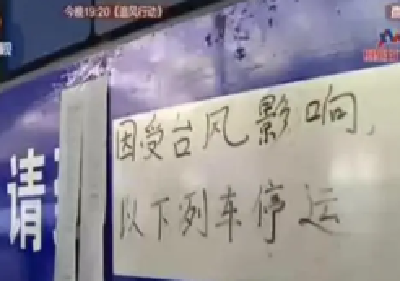 今晚19:20《追风行动》
因受台风影响,
以下列车停运
请